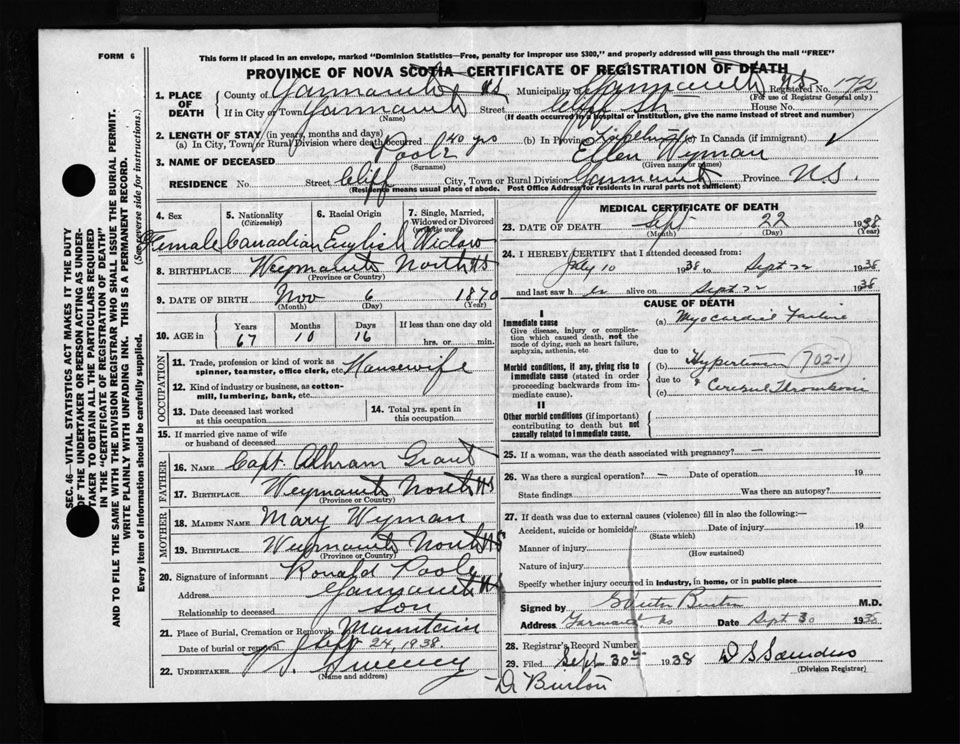 FORM 6
This form if placed in an envelope, marked "Dominion Statistics—Free, penalty for improper use $300," and properly addressed will pass through the mail "FREE"
PROVINCE OF NOVA SCOTIA—CERTIFICATE OF REGISTRATION OF DEATH
1. PLACE OF DEATH
County of Yarmouth NS Municipality of Yarmouth NS Registered No. 172
(For use of Registrar General only)
If in City or Town Yarmouth Street Cliff St. House No.
(Name) (If death occurred in a hospital or institution, give the name instead of street and number)
2. LENGTH OF STAY (in years, months and days)
(a) In City, Town or Rural Division where death occurred 40 yrs (b) In Province Life (c) In Canada (if immigrant)
3. NAME OF DECEASED Poole Ellen Wyman
(Surname) (Given name or names)
RESIDENCE No Street Cliff City, Town or Rural Division Yarmouth Province N.S.
(Residence means usual place of abode. Post Office Address for residents in rural parts not sufficient)
4. Sex Female
5. Nationality (Citizenship) Canadian
6. Racial Origin English
7. Single, Married, Widowed or Divorced (write the word) Widow
8. BIRTHPLACE Weymouth North NS
(Province or Country)
9. DATE OF BIRTH Nov 6 1870
(Month) (Day) (Year)
10. AGE in Years 67 Months 10 Days 16 If less than one day old hrs. or min.
OCCUPATION
11. Trade, profession or kind of work as spinner, teamster, office clerk, etc. Housewife
12. Kind of industry or business, as cotton-mill, lumbering, bank, etc.
13. Date deceased last worked at this occupation
14. Total yrs. spent in this occupation
15. If married give name of wife or husband of deceased
FATHER
16. NAME Capt. Grant
17. BIRTHPLACE Weymouth North NS
(Province or Country)
MOTHER
18. MAIDEN NAME Mary Wyman
19. BIRTHPLACE Weymouth North NS
(Province or Country)
20. Signature of informant Ronald Poole
Address Yarmouth NS
Relationship to deceased Son
21. Place of Burial, Cremation or Removal Mountain
Date of burial or removal Sept 24, 1938
22. UNDERTAKER V. S. Sweeney
(Name and address)
D. Burton
MEDICAL CERTIFICATE OF DEATH
23. DATE OF DEATH Sept 22 1938
(Month) (Day) (Year)
24. I HEREBY CERTIFY that I attended deceased from:
July 10 1938 to Sept 22 1938
and last saw her alive on Sept 22 1938
CAUSE OF DEATH
I
Immediate cause
Give disease, injury or complication which caused death, not the mode of dying, such as heart failure, asphyxia, asthenia, etc
(a) Myocardial Failure
due to
Morbid conditions, if any, giving rise to immediate cause (stated in order proceeding backwards from immediate cause).
(b) Hypertension 702-1
due to
(c) & Cerebral Thrombosis
II
Other morbid conditions (if important) contributing to death but not causally related to immediate cause.
25. If a woman, was the death associated with pregnancy? —
26. Was there a surgical operation? — Date of operation 19
State findings Was there an autopsy?
27. If death was due to external causes (violence) fill in also the following:—
Accident, suicide or homicide? Date of injury 19
(State which)
Manner of injury
(How sustained)
Nature of injury
Specify whether injury occurred in industry, in home, or in public place
Signed by Burton M.D.
Address Yarmouth NS Date Sept. 30 1938
28. Registrar's Record Number
29. Filed Sept 30th 1938 D S Saunders
(Division Registrar)
SEC. 46—VITAL STATISTICS ACT MAKES IT THE DUTY
OF THE UNDERTAKER OR PERSON ACTING AS UNDER-
TAKER TO OBTAIN ALL THE PARTICULARS REQUIRED
IN THE "CERTIFICATE OF REGISTRATION OF DEATH"
AND TO FILE THE SAME WITH THE DIVISION REGISTRAR WHO SHALL ISSUE THE BURIAL PERMIT.
WRITE PLAINLY WITH UNFADING INK. THIS IS A PERMANENT RECORD.
Every item of information should be carefully supplied. (See reverse side for instructions.)